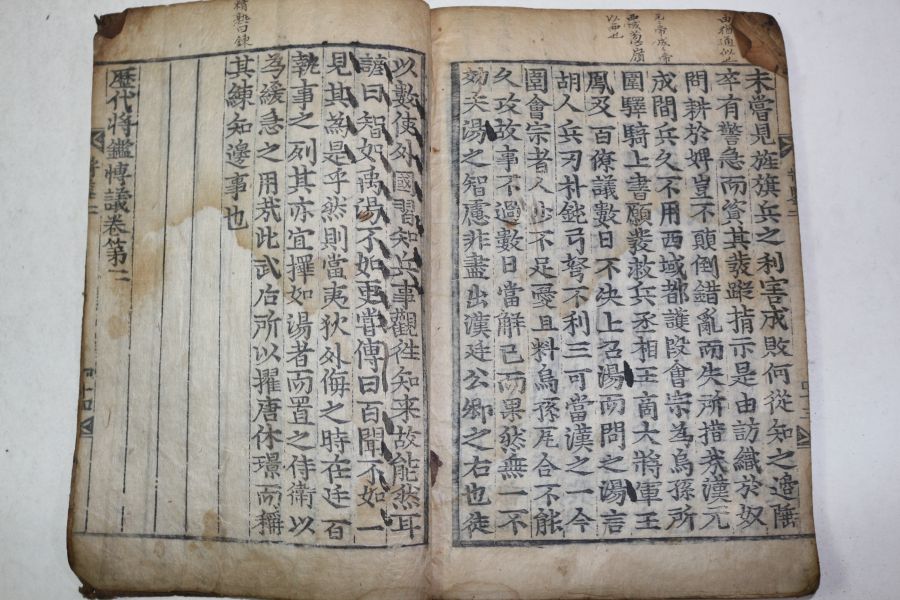 由猶通似也
未嘗見旌旗兵之利害成敗何從知之邊陲
卒有警急而資其發蹤指示是由訪織於奴
問耕於婢豈不顛倒錯亂而失所措哉漢元
成間兵久不用西域都護段會宗為烏孫所
圍驛騎上書願發救兵丞相王商大將軍王
鳳及百僚議數日不決上召湯而問之湯言
胡人兵刃朴鈍弓弩不利三可當漢之一今
圍會宗者人少不足憂且料烏孫瓦合不能
久攻故事不過數日當解已而果然無一不
効矣湯之智慮非盡出漢廷公卿之右也徒
以數使外國習知兵事觀徃知來故能然耳
諺曰智如禹湯不如更嘗傳曰百聞不如一
見其為是乎然則當夷狄外侮之時在廷百
執事之列其亦宜擇如湯者而置之侍衛以
為緩急之用哉此武后所以擢唐休璟而稱
其練知邊事也
歷代將鑑博議卷第二